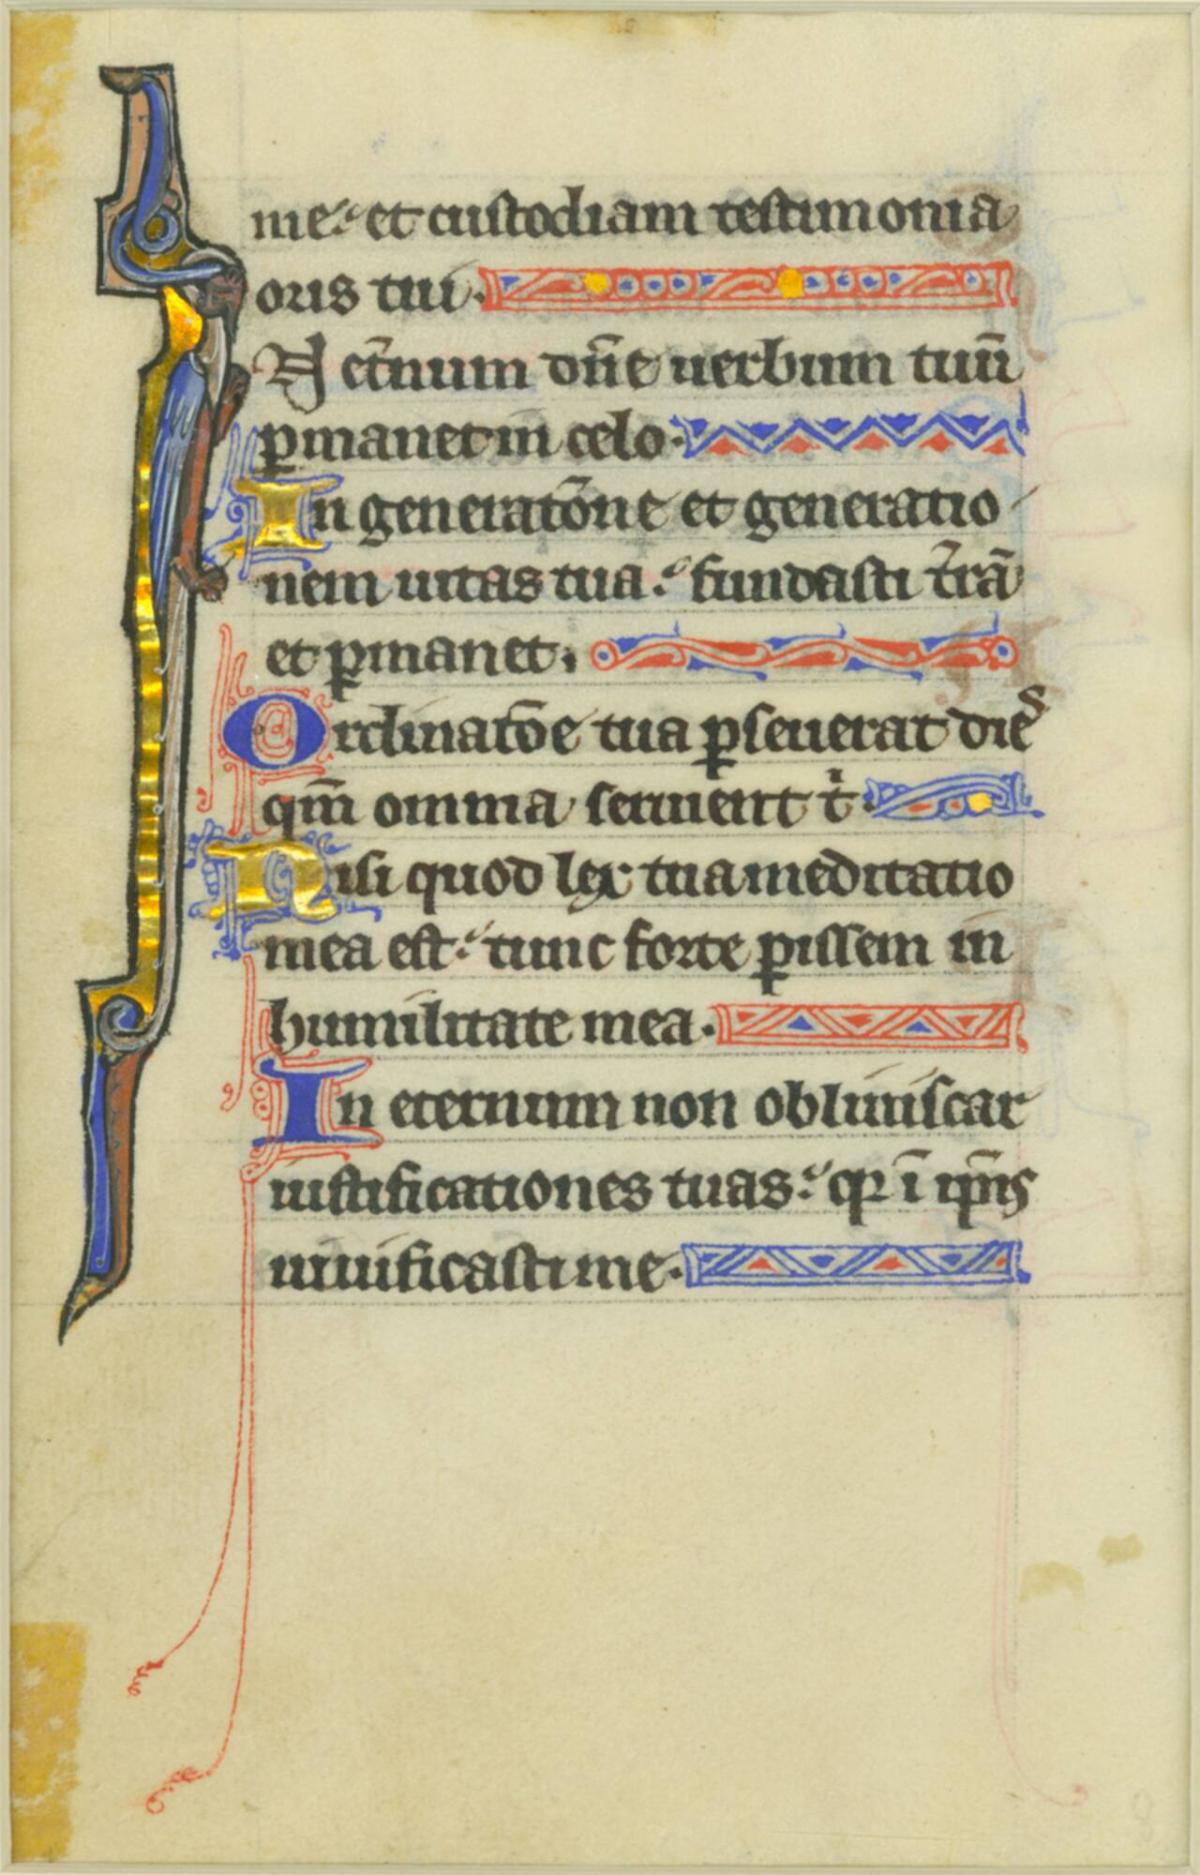 me. et custodiam testimonia
oris tui.
N et̄num dn̄e uerbum tuū
ꝑmanet in celo.
In generatōne et generatio
nem uitas tua. fundasti t̄rā
et ꝑmanet.
Ordinatōe tua ꝑseuerat dies
qm̄ omnia seruient tⁱ.
Nisi quod lex tua meditatio
mea est. tunc forte ꝑissem in
humilitate mea.
In eternum non obliuiscar
iustificationes tuas. qꝛ ī ip̄is
uiuificasti me.